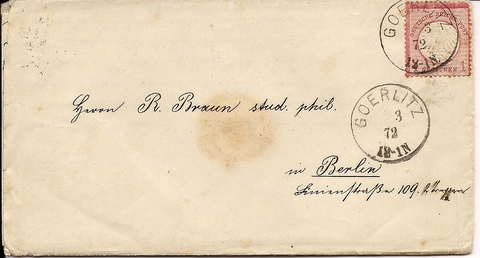 GOERLITZ
3
72
12-1N
GROSCHEN 1
Herrn R. Braun stud. phil.
GOERLITZ
3
72
12-1N
in Berlin
Linienstraße 109. 2 Treppen